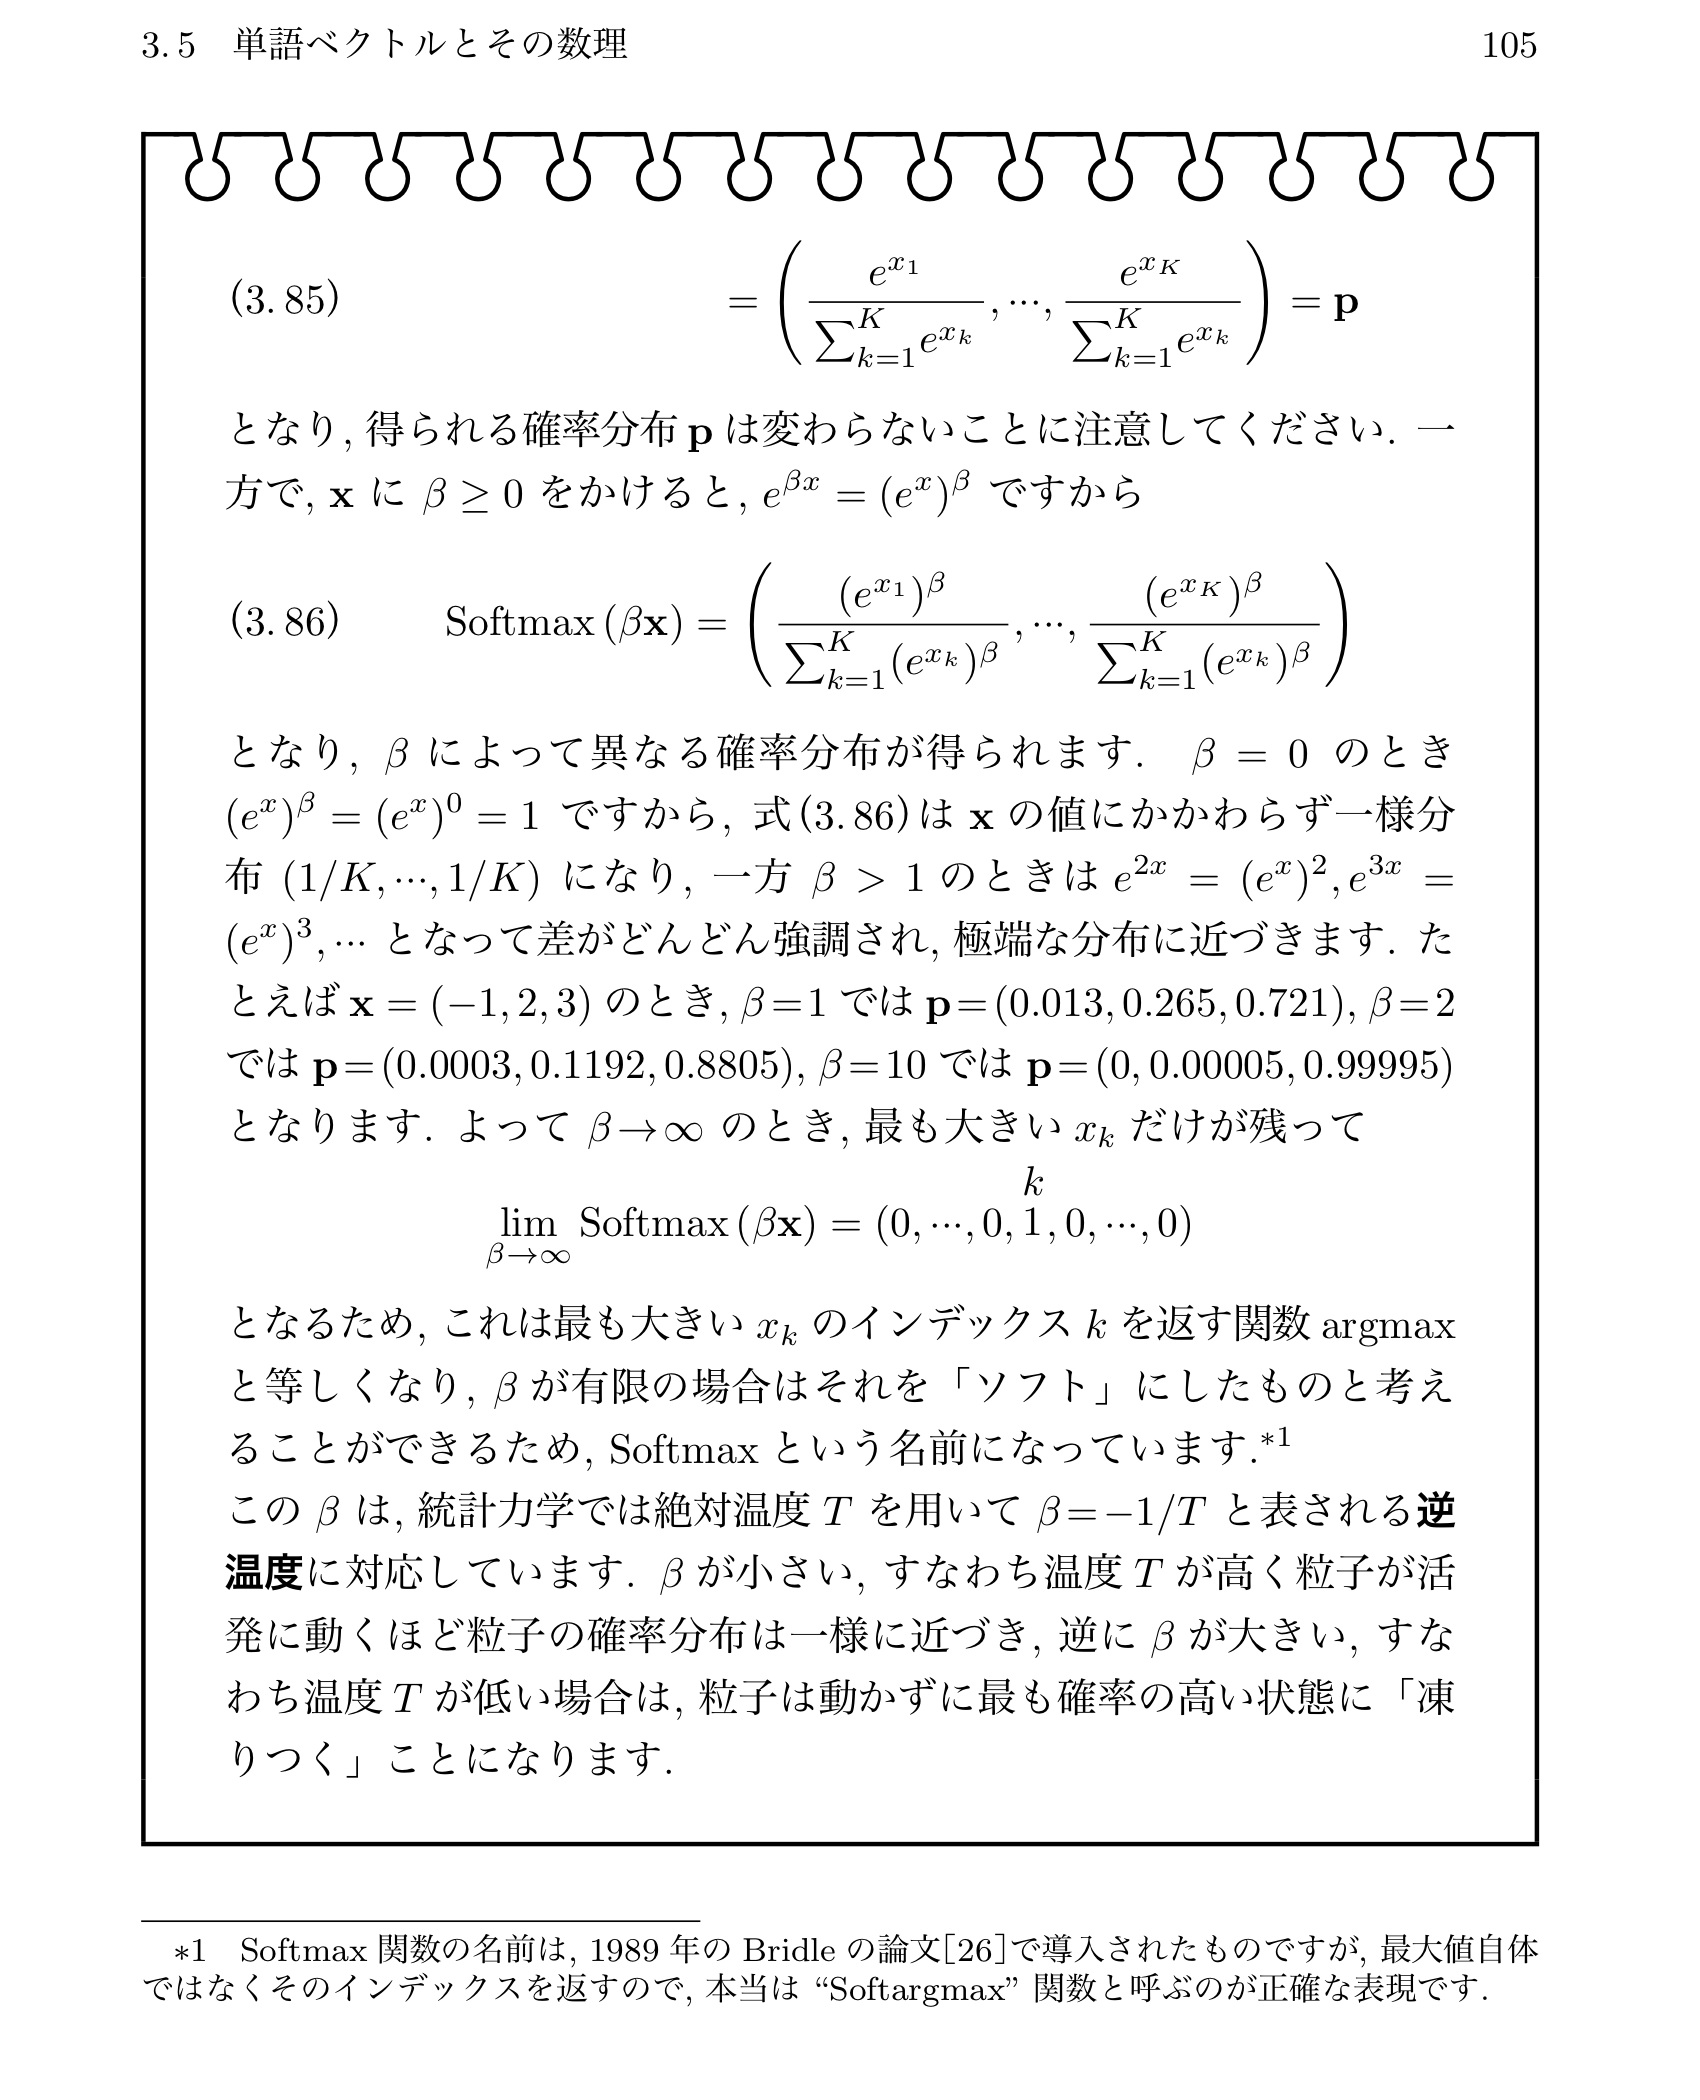 3.5 単語ベクトルとその数理 105
(3.85) = ( e^{x_1} / ∑_{k=1}^{K} e^{x_k}, ⋯, e^{x_K} / ∑_{k=1}^{K} e^{x_k} ) = p
となり, 得られる確率分布 p は変わらないことに注意してください. 一
方で, x に β ≥ 0 をかけると, e^{βx} = (e^x)^β ですから
(3.86) Softmax (βx) = ( (e^{x_1})^β / ∑_{k=1}^{K} (e^{x_k})^β, ⋯, (e^{x_K})^β / ∑_{k=1}^{K} (e^{x_k})^β )
となり, β によって異なる確率分布が得られます. β = 0 のとき
(e^x)^β = (e^x)^0 = 1 ですから, 式(3.86)は x の値にかかわらず一様分
布 (1/K, ⋯, 1/K) になり, 一方 β > 1 のときは e^{2x} = (e^x)^2, e^{3x} =
(e^x)^3, ⋯ となって差がどんどん強調され, 極端な分布に近づきます. た
とえば x = (−1, 2, 3) のとき, β=1 では p=(0.013, 0.265, 0.721), β=2
では p=(0.0003, 0.1192, 0.8805), β=10 では p=(0, 0.00005, 0.99995)
となります. よって β→∞ のとき, 最も大きい x_k だけが残って
k
lim_{β→∞} Softmax (βx) = (0, ⋯, 0, 1, 0, ⋯, 0)
となるため, これは最も大きい x_k のインデックス k を返す関数 argmax
と等しくなり, β が有限の場合はそれを「ソフト」にしたものと考え
ることができるため, Softmax という名前になっています.*1
この β は, 統計力学では絶対温度 T を用いて β=−1/T と表される逆
温度に対応しています. β が小さい, すなわち温度 T が高く粒子が活
発に動くほど粒子の確率分布は一様に近づき, 逆に β が大きい, すな
わち温度 T が低い場合は, 粒子は動かずに最も確率の高い状態に「凍
りつく」ことになります.
*1 Softmax 関数の名前は, 1989 年の Bridle の論文[26]で導入されたものですが, 最大値自体
ではなくそのインデックスを返すので, 本当は “Softargmax” 関数と呼ぶのが正確な表現です.